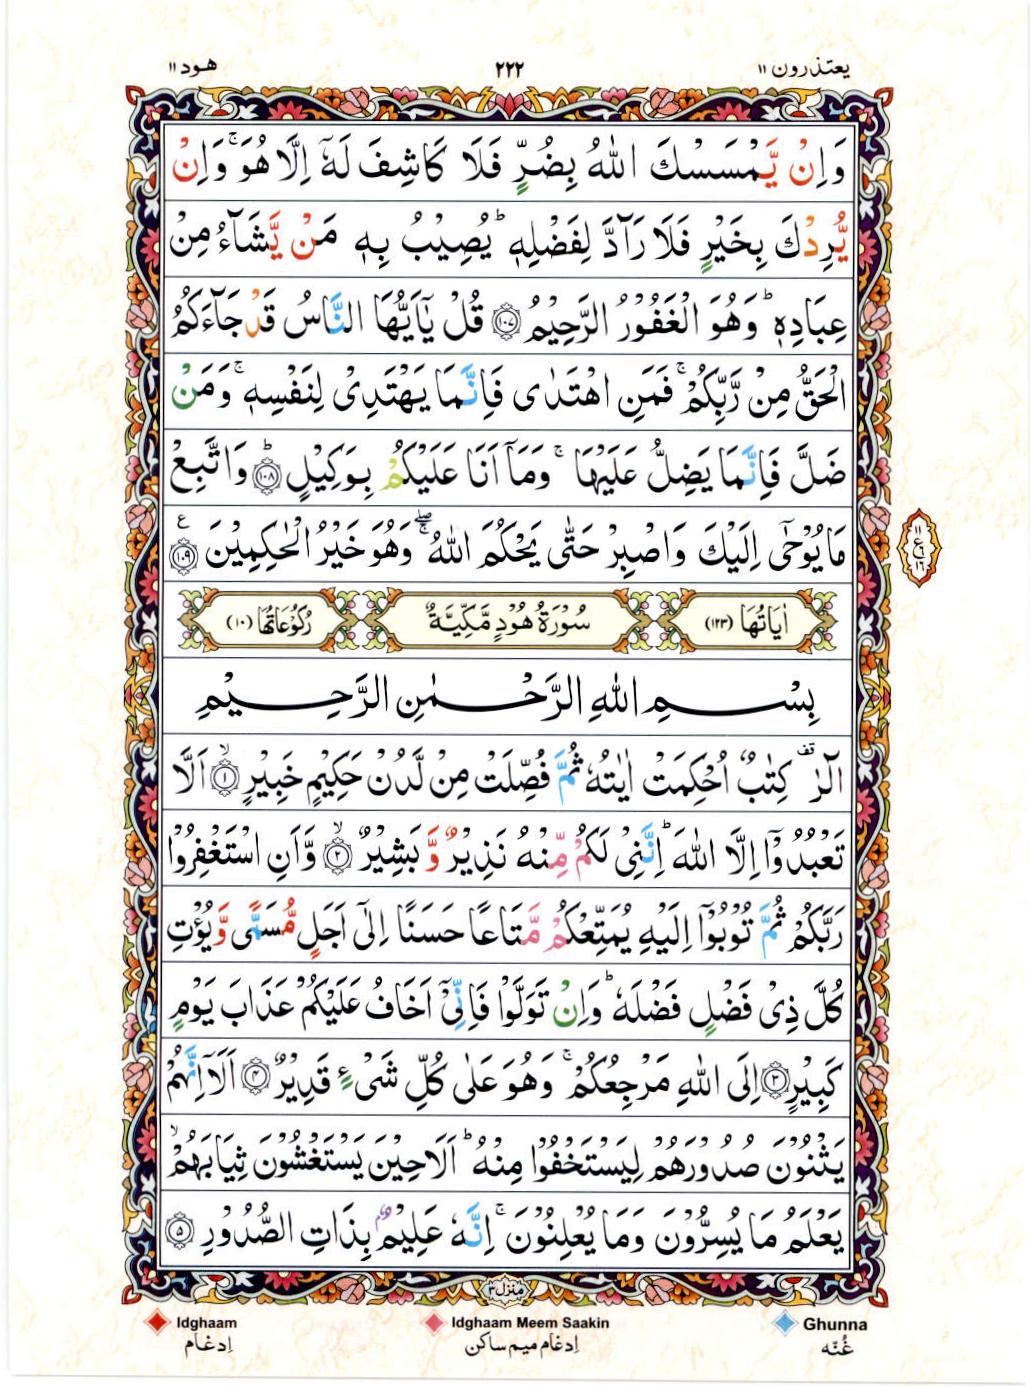 يعتذرون ١١
٢٢٢
هود ١١
وَاِنْ يَّمْسَسْكَ اللّٰهُ بِضُرٍّ فَلَا كَاشِفَ لَهٗۤ اِلَّا هُوَ ۚ وَاِنْ
يُّرِدْكَ بِخَيْرٍ فَلَا رَآدَّ لِفَضْلِهٖ ؕ يُصِيْبُ بِهٖ مَنْ يَّشَآءُ مِنْ
عِبَادِهٖ ؕ وَهُوَ الْغَفُوْرُ الرَّحِيْمُ ﴿۱۰۷﴾ قُلْ يٰۤاَيُّهَا النَّاسُ قَدْ جَآءَكُمُ
الْحَقُّ مِنْ رَّبِّكُمْ ۚ فَمَنِ اهْتَدٰى فَاِنَّمَا يَهْتَدِيْ لِنَفْسِهٖ ۚ وَمَنْ
ضَلَّ فَاِنَّمَا يَضِلُّ عَلَيْهَا ۚ وَمَاۤ اَنَا عَلَيْكُمْ بِوَكِيْلٍ ؕ﴿۱۰۸﴾ وَاتَّبِعْ
مَا يُوْحٰۤى اِلَيْكَ وَاصْبِرْ حَتّٰى يَحْكُمَ اللّٰهُ ۖۚ وَهُوَ خَيْرُ الْحٰكِمِيْنَ ﴿۱۰۹﴾ ع
۱۱ ع ٦ ۱٦
اٰيَاتُهَا (۱۲۳) سُوْرَةُ هُوْدٍ مَّكِّيَّةٌ رُكُوْعَاتُهَا (۱۰)
بِسْمِ اللّٰهِ الرَّحْمٰنِ الرَّحِيْمِ
الٓرٰ ۚ قف كِتٰبٌ اُحْكِمَتْ اٰيٰتُهٗ ثُمَّ فُصِّلَتْ مِنْ لَّدُنْ حَكِيْمٍ خَبِيْرٍ ۙ﴿۱﴾ اَلَّا
تَعْبُدُوْۤا اِلَّا اللّٰهَ ؕ اِنَّنِيْ لَكُمْ مِّنْهُ نَذِيْرٌ وَّبَشِيْرٌ ۙ﴿۲﴾ وَّاَنِ اسْتَغْفِرُوْا
رَبَّكُمْ ثُمَّ تُوْبُوْۤا اِلَيْهِ يُمَتِّعْكُمْ مَّتَاعًا حَسَنًا اِلٰۤى اَجَلٍ مُّسَمًّى وَّيُؤْتِ
كُلَّ ذِيْ فَضْلٍ فَضْلَهٗ ؕ وَاِنْ تَوَلَّوْا فَاِنِّيْۤ اَخَافُ عَلَيْكُمْ عَذَابَ يَوْمٍ
كَبِيْرٍ ﴿۳﴾ اِلَى اللّٰهِ مَرْجِعُكُمْ ۚ وَهُوَ عَلٰى كُلِّ شَيْءٍ قَدِيْرٌ ﴿۴﴾ اَلَاۤ اِنَّهُمْ
يَثْنُوْنَ صُدُوْرَهُمْ لِيَسْتَخْفُوْا مِنْهُ ؕ اَلَا حِيْنَ يَسْتَغْشُوْنَ ثِيَابَهُمْ ۙ
يَعْلَمُ مَا يُسِرُّوْنَ وَمَا يُعْلِنُوْنَ ۚ اِنَّهٗ عَلِيْمٌۢ بِذَاتِ الصُّدُوْرِ ﴿۵﴾
منزل ۳
Idghaam
Idghaam Meem Saakin
Ghunna
اِدغام
اِدغام میم ساکن
غُنّہ